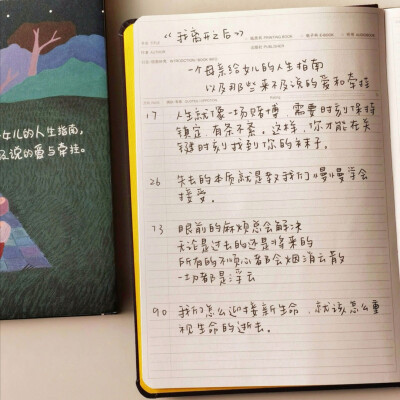 《我离开之后》
一个母亲给女儿的人生指南
以及那些来不及说的爱和牵挂
17 人生就像一场赌博,需要时刻保持
镇定、有条不紊。这样,你才能在关
键时刻找到你的袜子。
26 失去的本质就是教我们慢慢学会
接受。
73 眼前的麻烦总会解决
无论是过去的还是将来的
所有的不顺心都会烟消云散
一切都是浮云
90 我们怎么迎接新生命,就该怎么重
视生命的逝去。
女儿的人生指南,
及说的爱与牵挂。